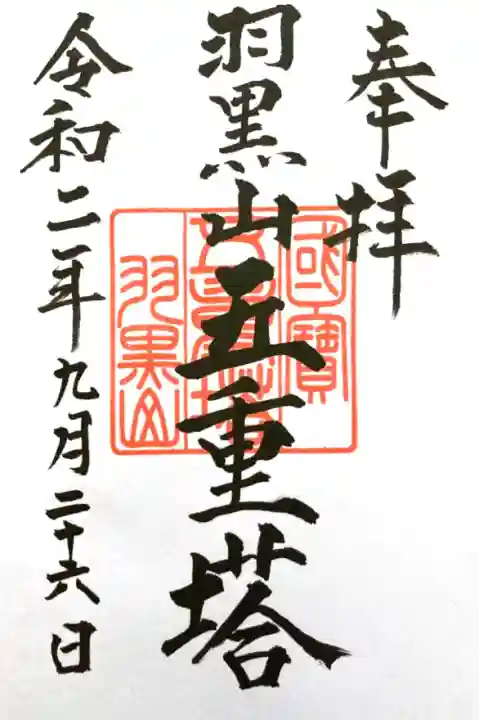 奉拝
羽黒山五重塔
令和二年九月二十六日
國寶
五重塔
羽黒山